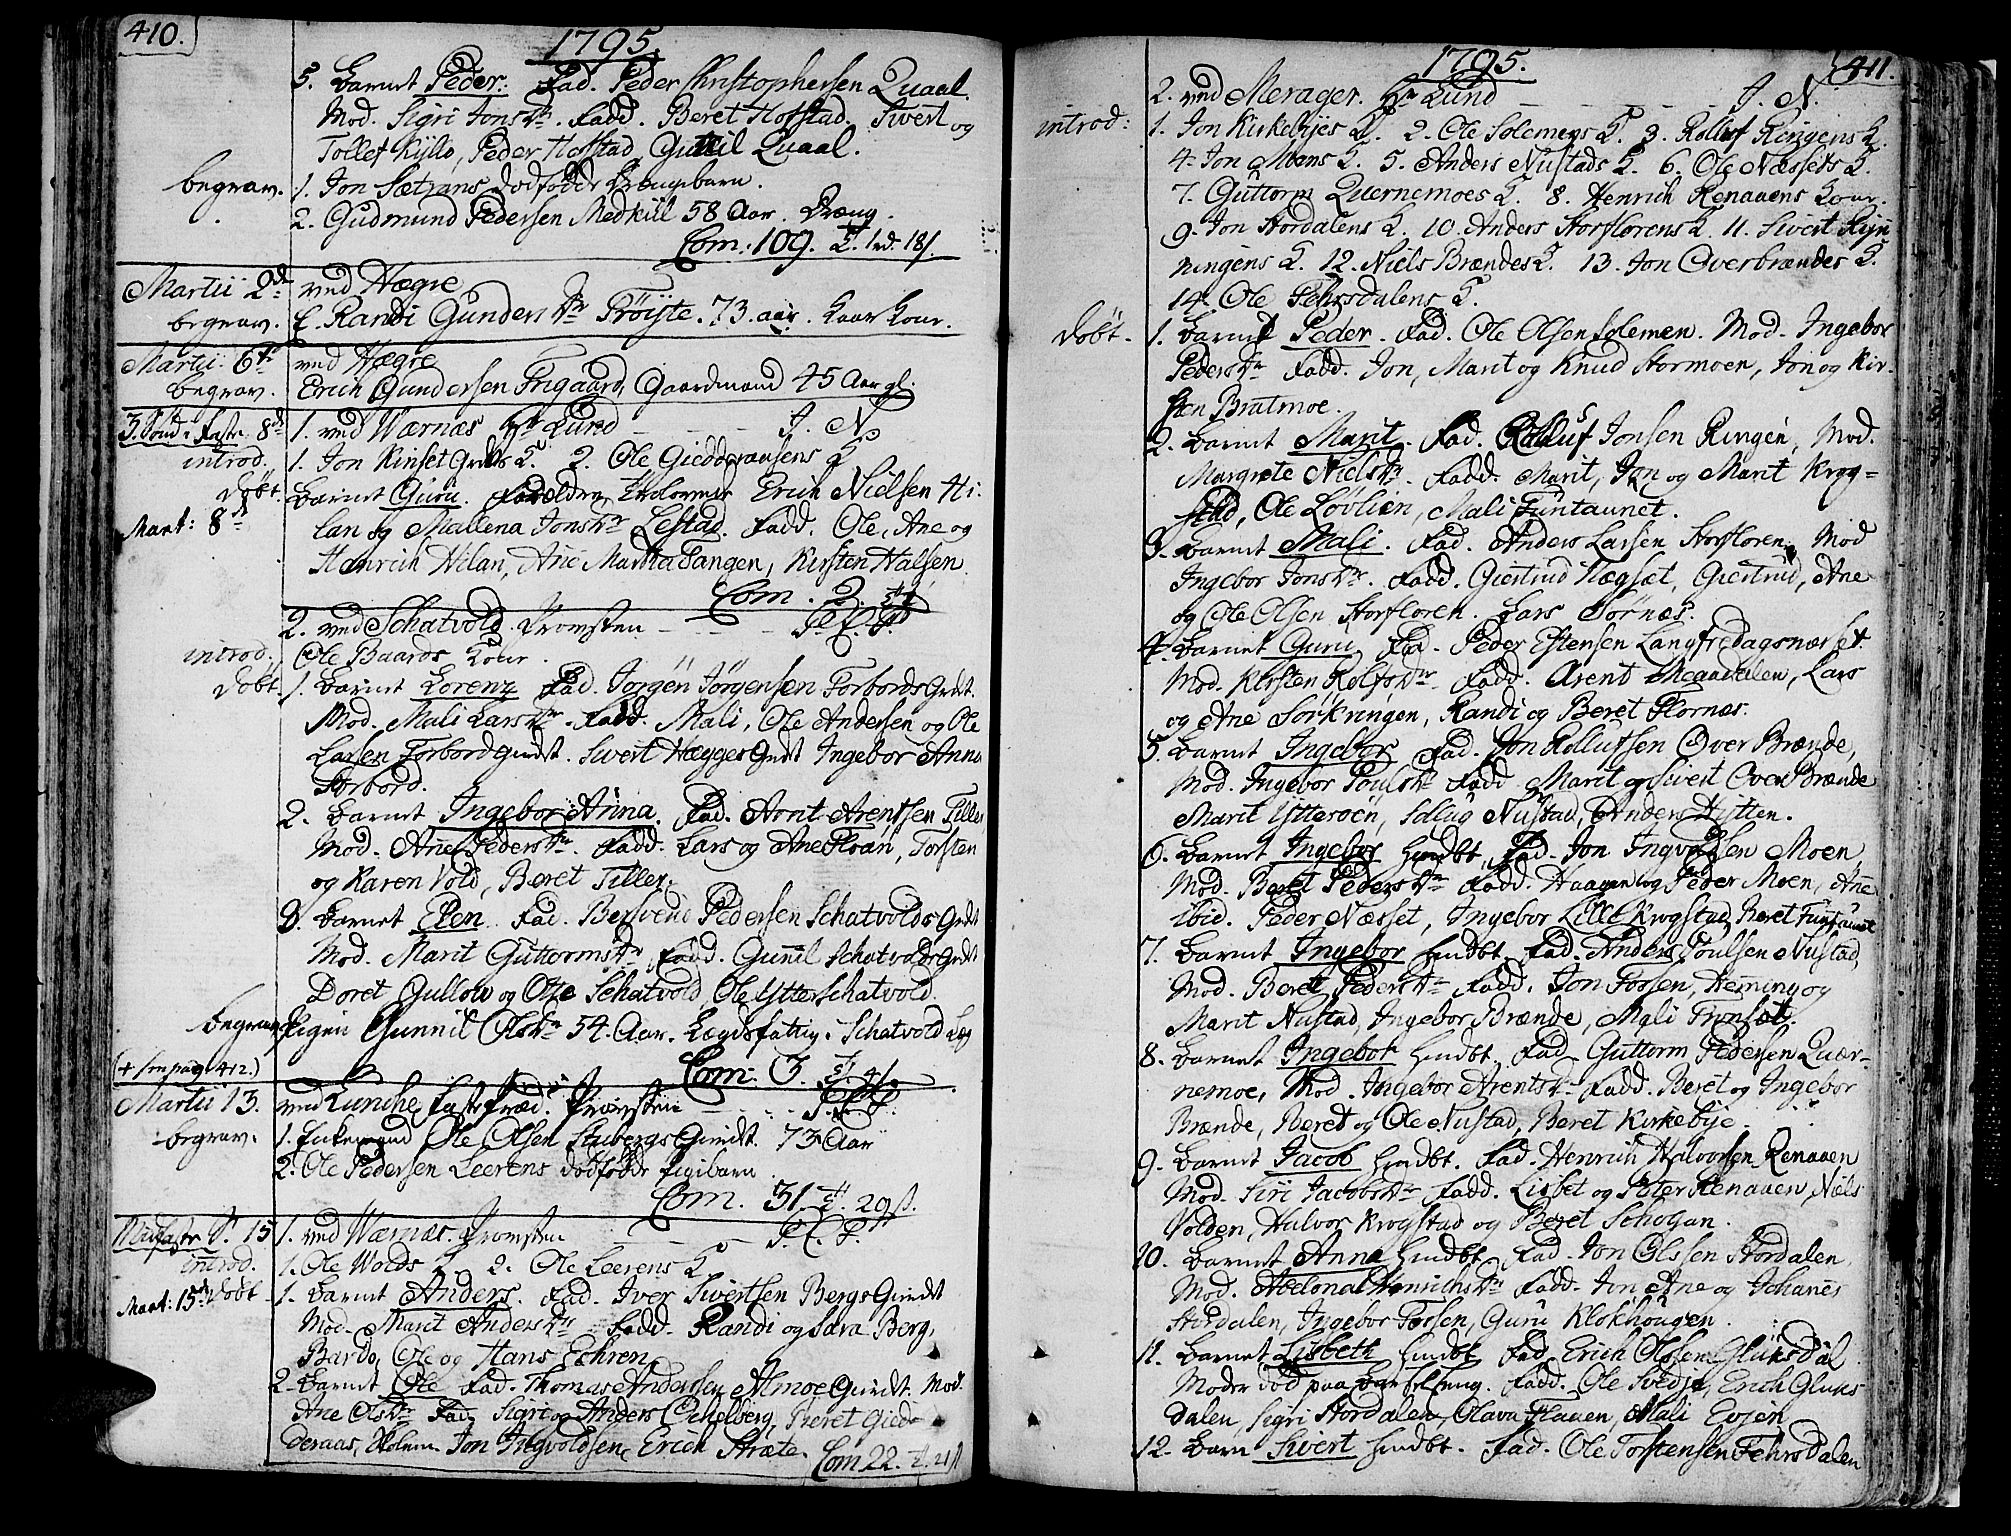 410.
1795.
5. Barnet Peder. Fad. Peder Christophersen Quaal.
Mod. Sigri Jonsdr. Fadd. Beret Hofstad. Sivert og
Tollef Kyllo, Peder Hofstad Gunil Quaal.
begrav. 1. Jon Sætrans dødfødde Drengebarn.
2. Gudmund Pedersen Medkiil 58 Aar. Dræng.
Com: 109.
Martii 2d ved Hægre
begrav. Randi Gundersdr Frøiste. 73. aar.
Martii 6te ved Hægre
begrav. Erich Gundersen Ingaard, Gaardmand 45 Aar gl.
3. Sönd. i Faste 8d 1. ved Wærnæs Hr Lund J. N.
introd. 1. Jon Kinset Grds K. 2. Ole Gieddraasens K
døbt. Barnet Guru. Erich Nielsen Hi-
Mart: 8d lan og Mallena Jonsdr Lestad. Fadd. Ole, Ane og
Henrich Hilan, Ane Martha Sangen, Kirsten Halsen.
Com. 2.
2. ved Schatvold. Provsten P. C. P.
introd. Ole Baards Kone.
døbt. 1. Barnet Lorenz Fad. Jørgen Jørgensen Forbords Grdt.
Mod. Mali Larsdr. Fadd. Mali, Ole Andersen og Ole
Larsen Forbord grdt. Sivert Hægges Grdt Ingebor Anna
Forbord.
2. Barnet Ingebor Anna. Fad. Arnt Arentsen Tiller
Mod. Ane Pedersdr. Fadd. Lars og Ane Floan, Torsten
og Karen Vold, Beret Tiller.
3. Barnet Elen. Fad. Bersvend Pedersen Schatvolds Grdt
Mod. Marit Guttormsdr, Fadd. Gunil Schatvolds Grdt
Doret Gullow og Ole Schatvold, Ole Ytterschatvold.
begrav. Pigen Gunnil Olsdr 54. Aar. Lægdsfattig. Schatvold Læg
(+ pag. 412.) Com: 3.
Martii 13. ved Lænche faste Præd. Provsten P. C. P.
begrav. 1. Enkemand Ole Olsen Stubergs Grdt. 73 Aar
2. Ole Pedersen Leerens dødfødde Pigebarn
Com. 31
Midfaste S. 15 1. ved Wærnæs. Provsten P. C. P.
introd. 1. Ole Wolds K 2. Ole Leerens K
Mart: 15d døbt 1. Barnet Anders. Fad. Iver Sivertsen Bergs Grdt
Mod. Marit Andersdr Fadd. Randi og Sara Berg,
Bardo, Ole og Hans Echren.
2. Barnet Ole Fad. Thomas Andersen Almoe Grdt. Mod.
Ane Olsdr Fad. Sigri og Anders Eckelberg, Beret Gied-
deraas, Jon Ingvoldsen, Erich Stræte. Com 22.
411.
1795.
2. ved Merager. Hr Lund J. N.
introd: 1. Jon Kirkebyes K. 2. Ole Solemens K. 3. Rolluf Ringens K.
4. Jon Moens K. 5. Anders Nustads K. 6. Ole Næssets K.
7. Guttorm Quernemoes K. 8. Henrich Renaaens Kone.
9. Jon Stordalens K. 10. Anders Storflorens K. 11. Sivert Kyn
ningens K. 12. Niels Brændes K. 13. Jon Overbrændes K.
14. Ole Fehrsdalens K.
døbt. 1. Barnet Peder. Fad. Ole Olsen Solemen. Mod. Ingebor
Pedersdr Fadd. Jon, Marit og Knud Stormoen, Jon og Kir-
sten Bratmoe.
2. Barnet Marit. Fad. Rolluf Jonsen Ringen, Mod.
Margrete Nielsdr. Fadd. Marit, Jon og Marit Krog-
stad, Ole Løvlien, Mali Funtaunet.
3. Barnet Mali. Fad. Anders Larsen Storfloren. Mod
Ingebor Jonsdr. Fadd. Giertrud Hægset, Giertrud, Ane
og Ole Olsen Storfloren. Lars Sørnæs.
4. Barnet Guru Fad. Peder Estensen Langfredagsnæset.
Mod. Kirsten Rolfsdr. Fadd. Arent Mogaadalen, Lars
og Ane Sørkringen, Randi og Beret Flornæs.
5. Barnet Ingebor Fad. Jon Rollufsen Over Brænde,
Mod. Ingebor Poulsdr Fadd. Marit og Sivert Over Brænde
Marit Ytterøen, Sdlug Nustad, Anders Hytten.
6. Barnet Ingebor hmdbt. Fad. Jon Ingvoldsen Moen,
Mod. Beret Pedersdr Fadd. Haagen og Peder Moen, Ane
ibid. Peder Næsset, Ingebor Lille Krogstad, Beret Funtaunet
7. Barnet Ingebor hmdbt. Fad. Anders Poulsen Nustad,
Mod. Beret Pedersdr Fadd. Jon Fossen, Heming og
Marit Nustad, Ingebor Brænde, Mali Tronset.
8. Barnet Ingebor hmdbt. Fad. Guttorm Pedersen Quær-
nemoe, Mod. Ingebor Arentsdr. Fadd. Beret og Ingebor
Brænde, Beret og Ole Nustad, Beret Kirkebye.
9. Barnet Jacob hmdbt. Fad. Henrich Halvorsen Renaaen
Mod. Siri Jacobsdr Fadd. Lisbet og Peter Renaaen, Niels
Volden, Halvor Krogstad og Beret Schogan.
10. Barnet Anne hmdbt. Fad. Jon Olssen Stordalen,
Mod. Abelona Henrichsdr Fadd. Jon Ane og Johannes
Stordalen, Ingebor Fossen, Guru Klokhougen.
11. Barnet Lisbeth hmdbt Fad. Erich Olssen Gluksdal
Moder død paa Barselseng. Fadd. Ole Svedje, Erich Gluks-
dalen, Sigri Stordalen, Olava Flaaen, Mali Evjen
12. Barn Sivert hmdbt. Fad. Ole Torstensen Fehrsdalen